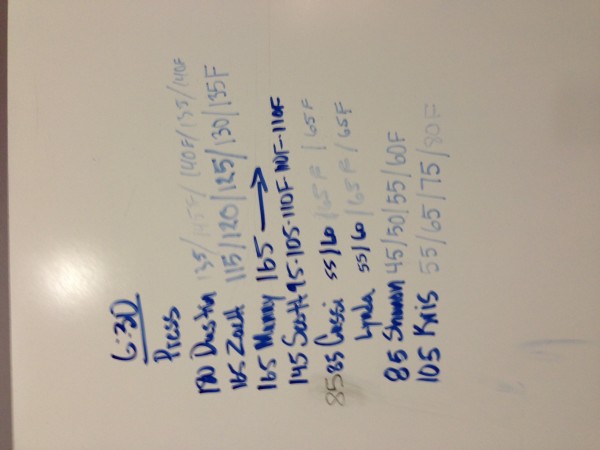 6:30
Press
190 Dustin 135/145F/140F/135/140F
165 Zach 115/120/125/130/135F
165 Manny 165 →
145 Scott 95-105-110F 110F-110F
85 85 Cassi 55/60/65F/65F
Lynda 55/60/65F/65F
85 Shannon 45/50/55/60F
105 Kris 55/65/75/80F